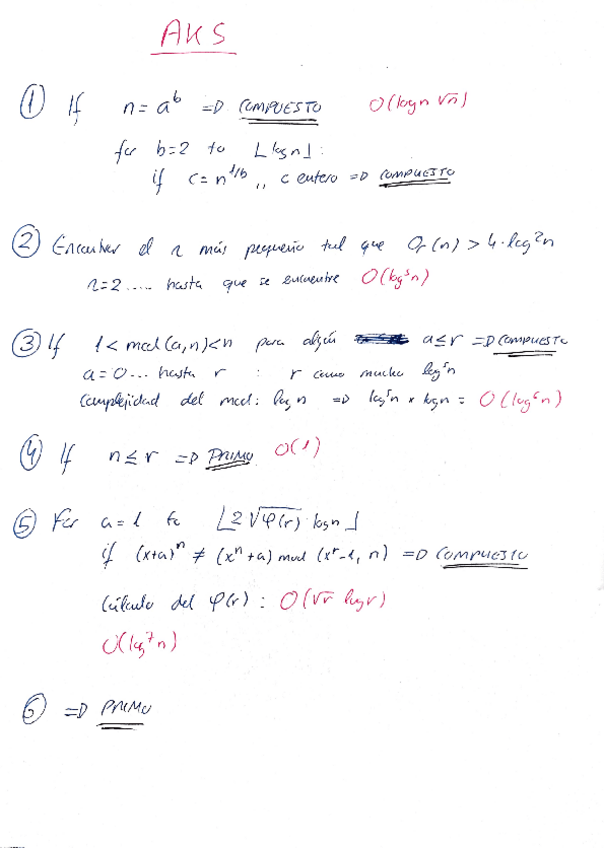 AKS
① If n = a^b => COMPUESTO O(logn √n)
for b=2 to ⌊logn⌋:
if c = n^1/b ,, c entero => COMPUESTO
② Encontrar el r más pequeño tal que Or(n) > 4·log²n
r=2..... hasta que se encuentre O(log⁵n)
③ If 1 < mcd(a,n) < n para algún a ≤ r => COMPUESTO
a = 0... hasta r : r como mucho log⁵n
Complejidad del mcd: log n => log⁵n × logn = O(log⁶n)
④ If n ≤ r => PRIMO O(1)
⑤ For a = 1 to ⌊2√φ(r) logn⌋
if (x+a)^n ≠ (x^n + a) mod (x^r - 1, n) => COMPUESTO
Cálculo del φ(r) : O(√r logr)
O(log⁷n)
⑥ => PRIMO